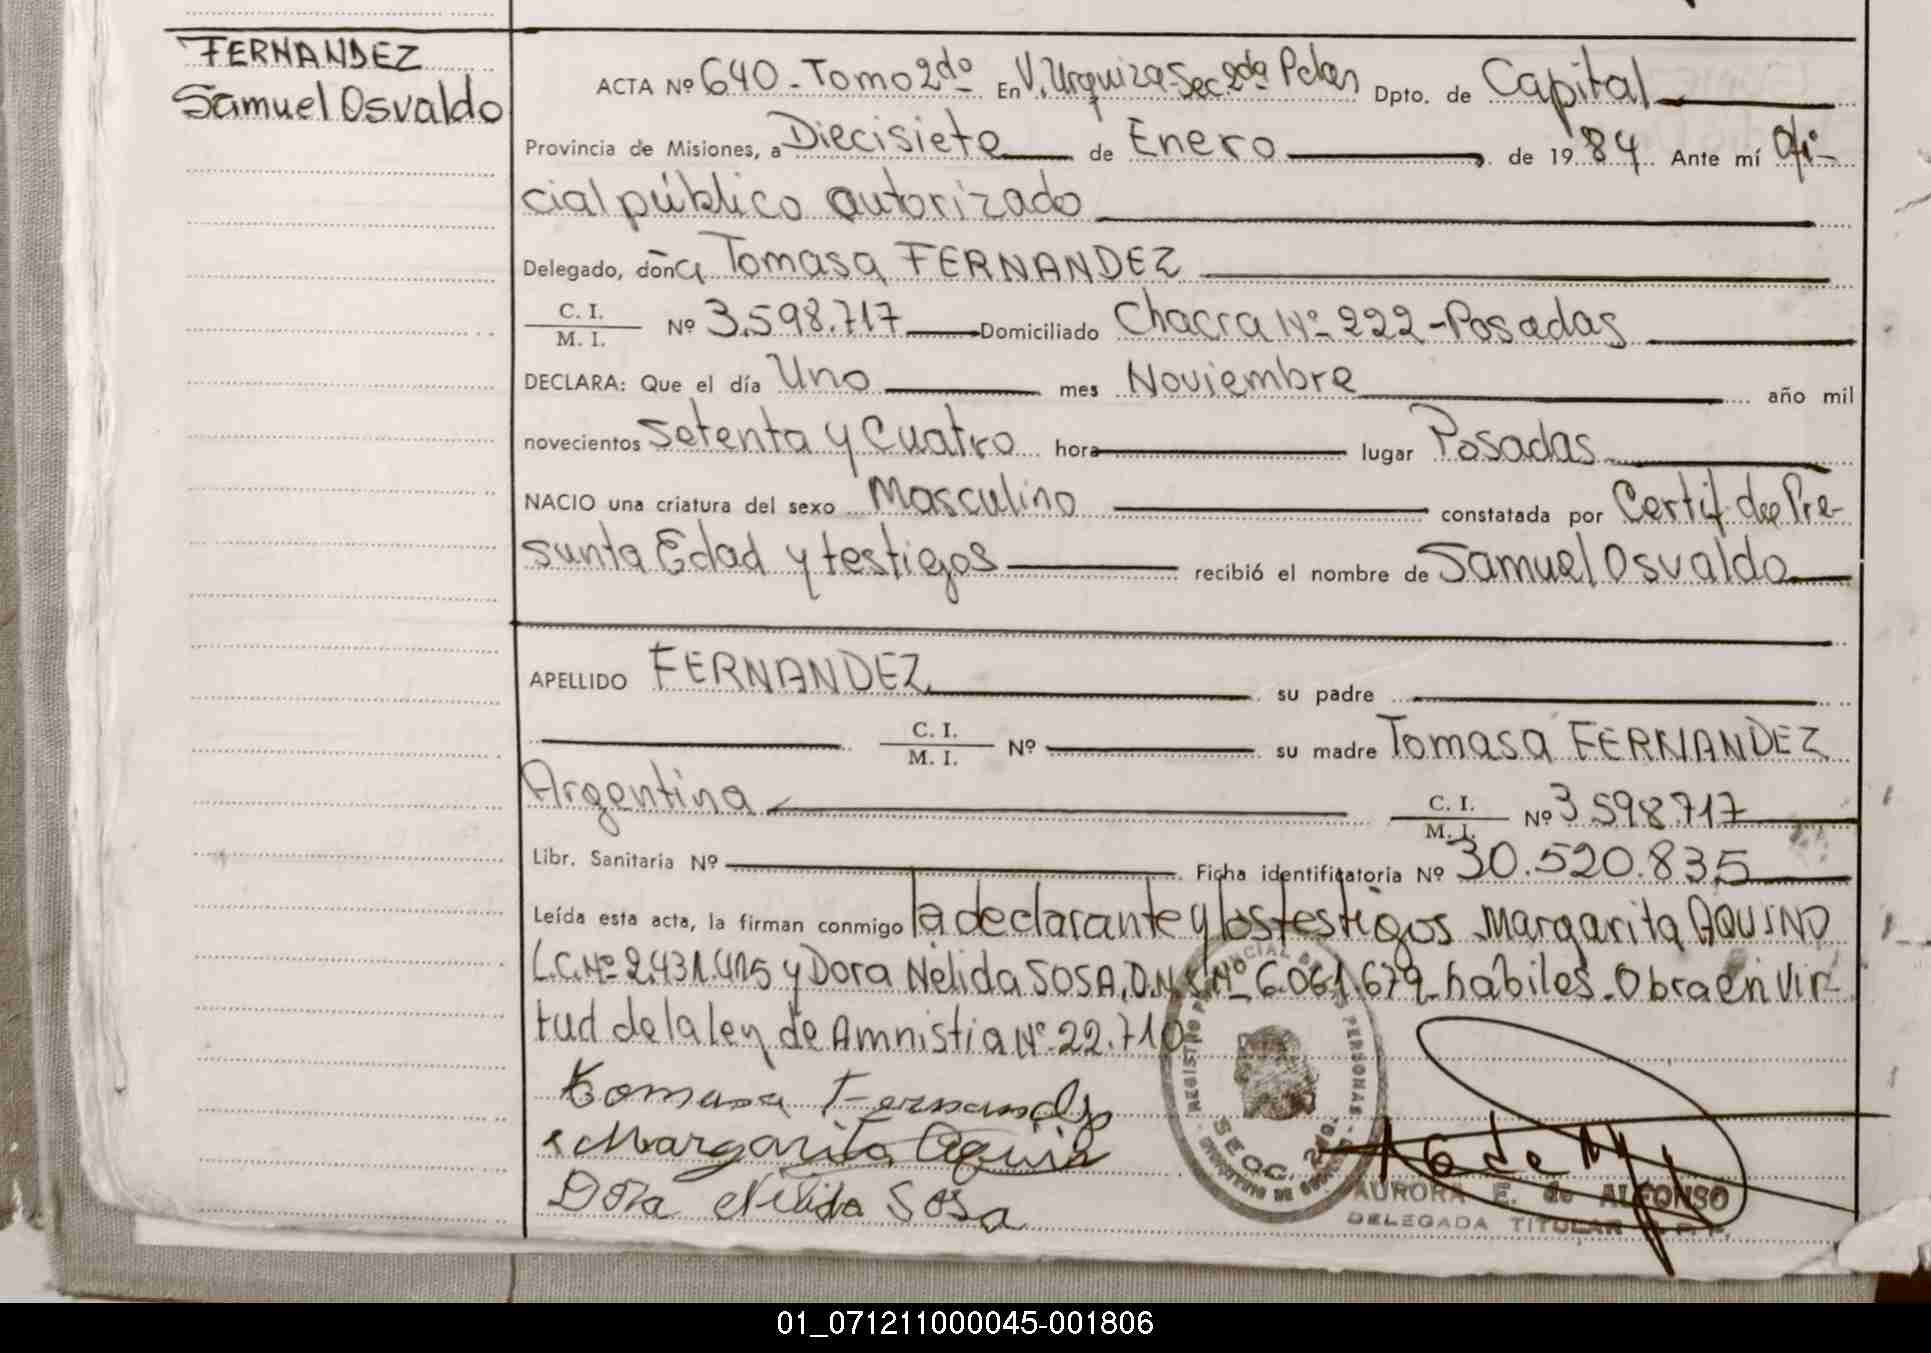 FERNANDEZ
Samuel Osvaldo
ACTA Nº 640 - Tomo 2do En V. Urquiza Sec 2da Pdas Dpto. de Capital
Provincia de Misiones, a Diecisiete de Enero de 1984 Ante mí Ofi-
cial público autorizado
Delegado, doña Tomasa FERNANDEZ
C. I.
M. I. Nº 3.598.717 Domiciliado Chacra Nº 222 - Posadas
DECLARA: Que el día Uno mes Noviembre año mil
novecientos Setenta y Cuatro hora lugar Posadas
NACIO una criatura del sexo Masculino constatada por Certif de Pre-
sunta Edad y testigos recibió el nombre de Samuel Osvaldo
APELLIDO FERNANDEZ su padre
C. I.
M. I. Nº su madre Tomasa FERNANDEZ
Argentina C. I.
M. I. Nº 3598717
Libr. Sanitaria Nº Ficha identificatoria Nº 30.520.835
Leída esta acta, la firman conmigo la declarante y los testigos Margarita AQUINO
L.C.Nº 2.431.415 y Dora Nélida SOSA, D.N.I. Nº 6.061.679 - habiles. Obra en vir-
tud de la ley de Amnistia Nº 22.710
Tomasa Fernandez
Margarita Aquino
Dora Nélida Sosa
AURORA E. de ALFONSO
DELEGADA TITULAR
01_071211000045-001806